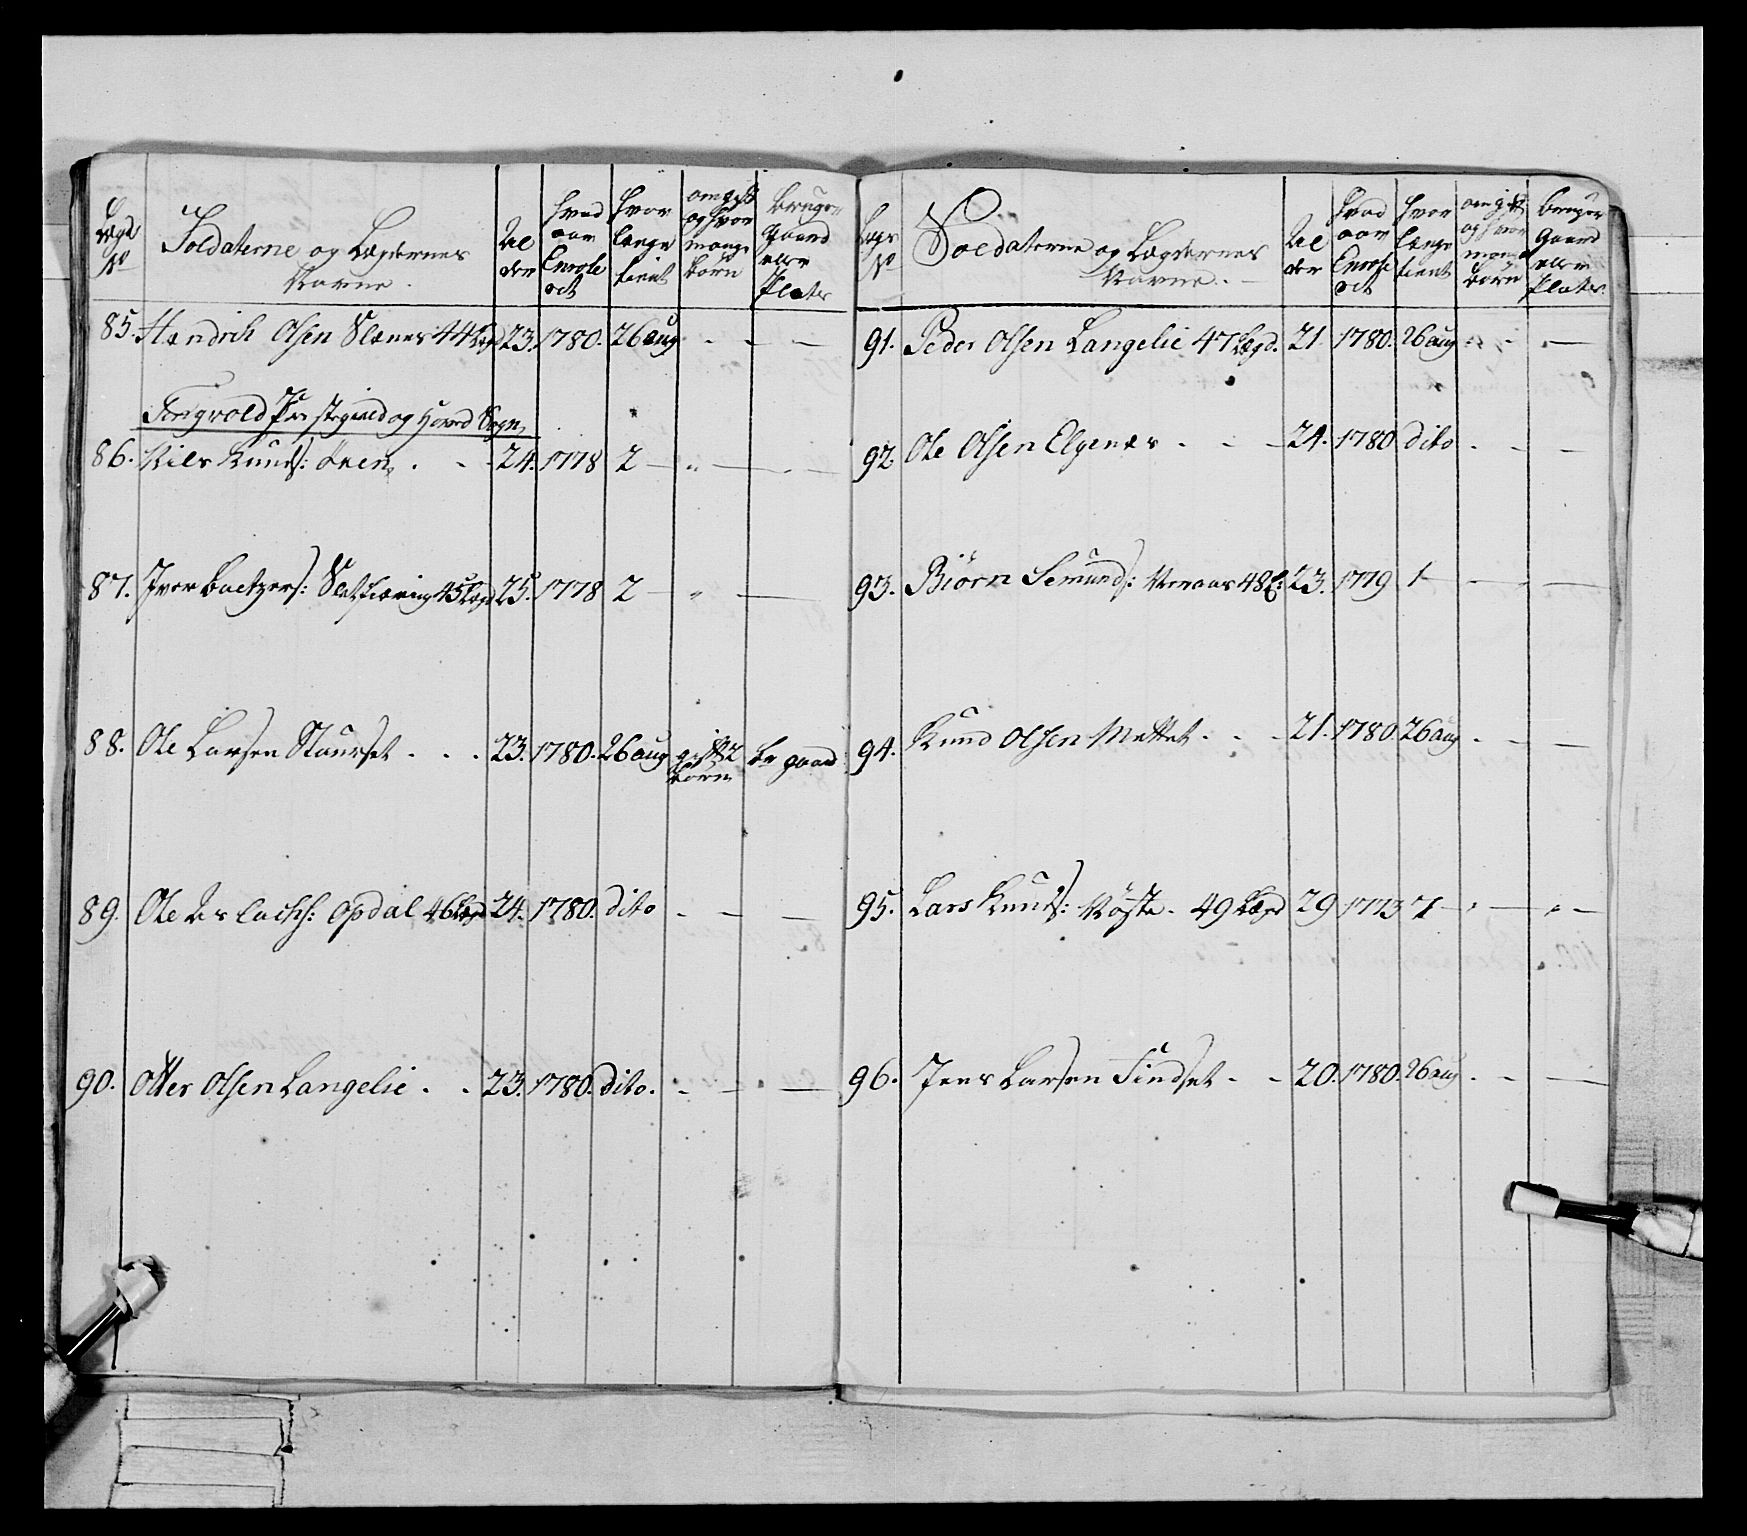 Lægd No
Soldaterne og Lægdernes Navne.
Al der
Hvad aar Enrole ret
Hvor længe tient
om gift og hvor mange børn
bruger gaard eller Plads
85. Hendrich Olsen Slenes 44 Lægd 23. 1780. 26 aug
Tingvold Præstegield og Hoved Sogn
86. Niels Knuds: 24. 1778 2
87. Iver Baltzers: 45 Lægd 25. 1778 2
88. Ole Larsen Staurset 23. 1780. 26 aug gift 2 børn br gaard
89. Ole Aslachs: Opdal 46 Lægd 24. 1780. dito
90. Otter Olsen Langelie 23. 1780. dito.
Lægd No
Soldaterne og Lægdernes Navne.
Al der
Hvad aar Enrole ret
Hvor længe tient
om gift og hvor mange børn
bruger gaard eller Plads
91. Peder Olsen Langelie 47 Lægd. 21. 1780. 26 aug
92. Ole Olsen Elgenes 24. 1780 dito
93. Biörn Semunds: 48 L: 23. 1779 1
94. Knud Olsen Mettet 21. 1780. 26 aug
95. Lars Knuds: Röste. 49 Lægd 29 1773 7
96. Jens Larsen Findset 20. 1780. 26 aug